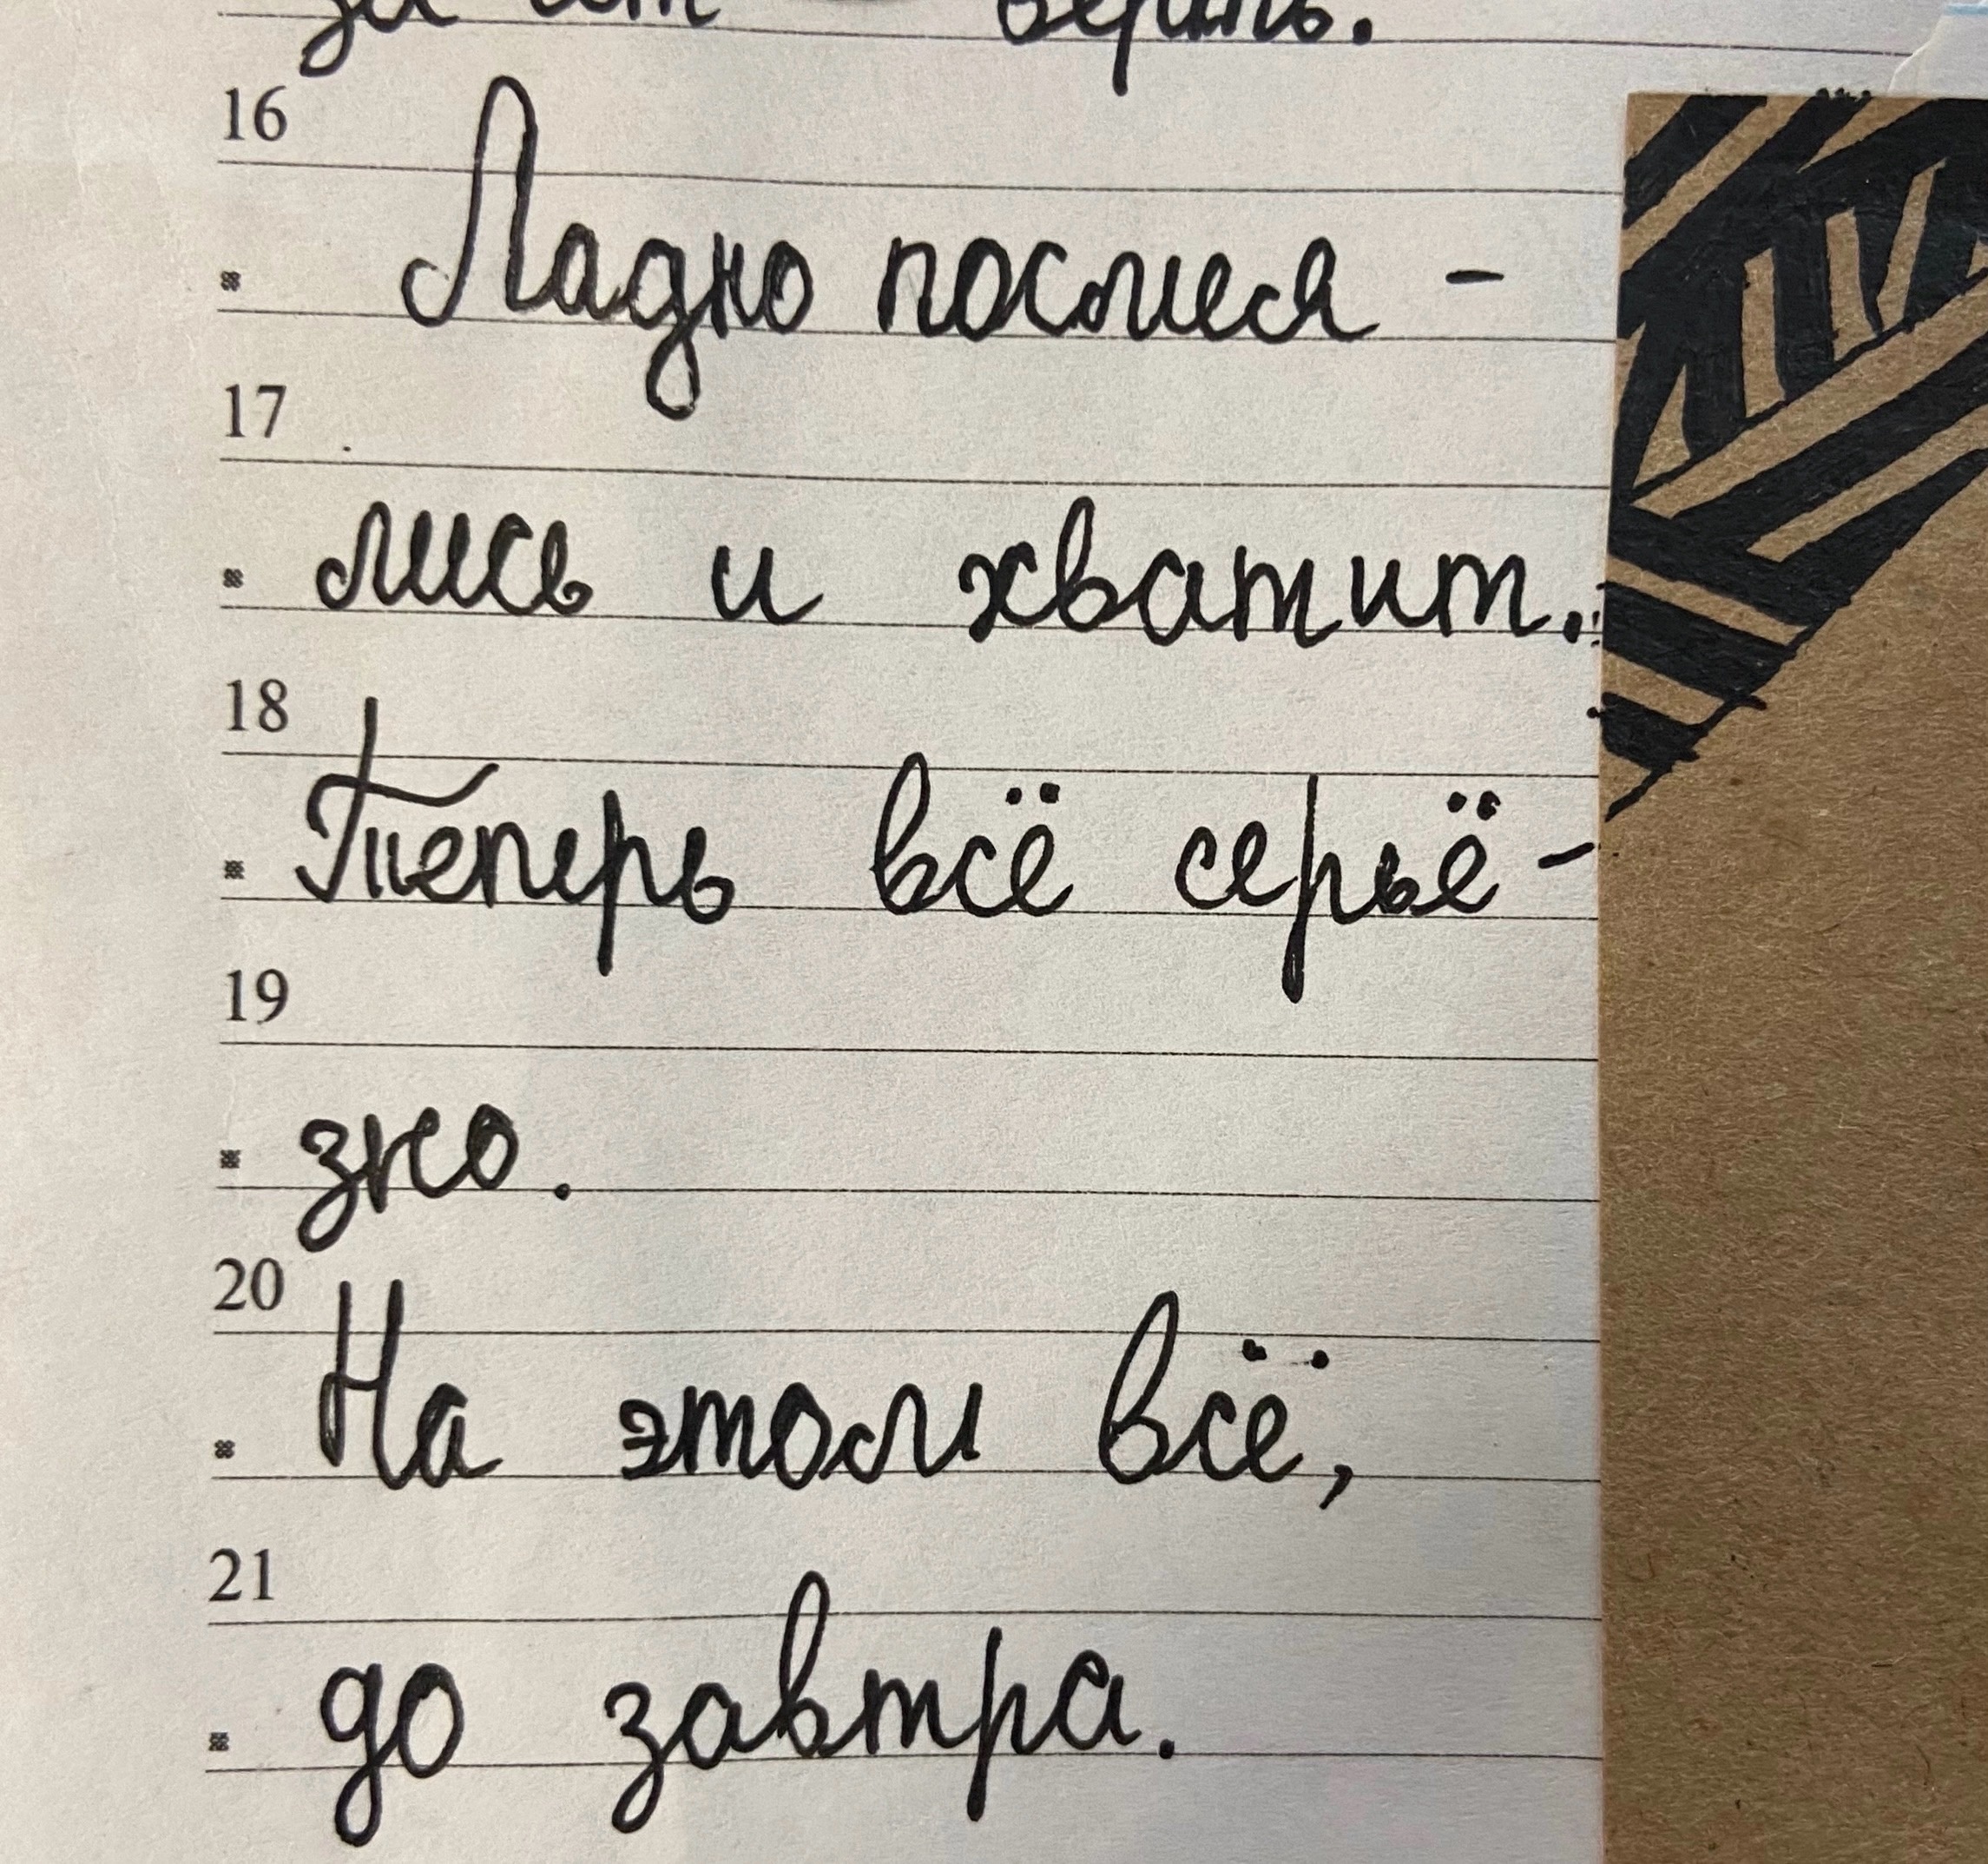 верить.
16
Ладно посмея -
17
лись и хватит.
18
Теперь всё серьё -
19
зно.
20
На этом всё,
21
до завтра.